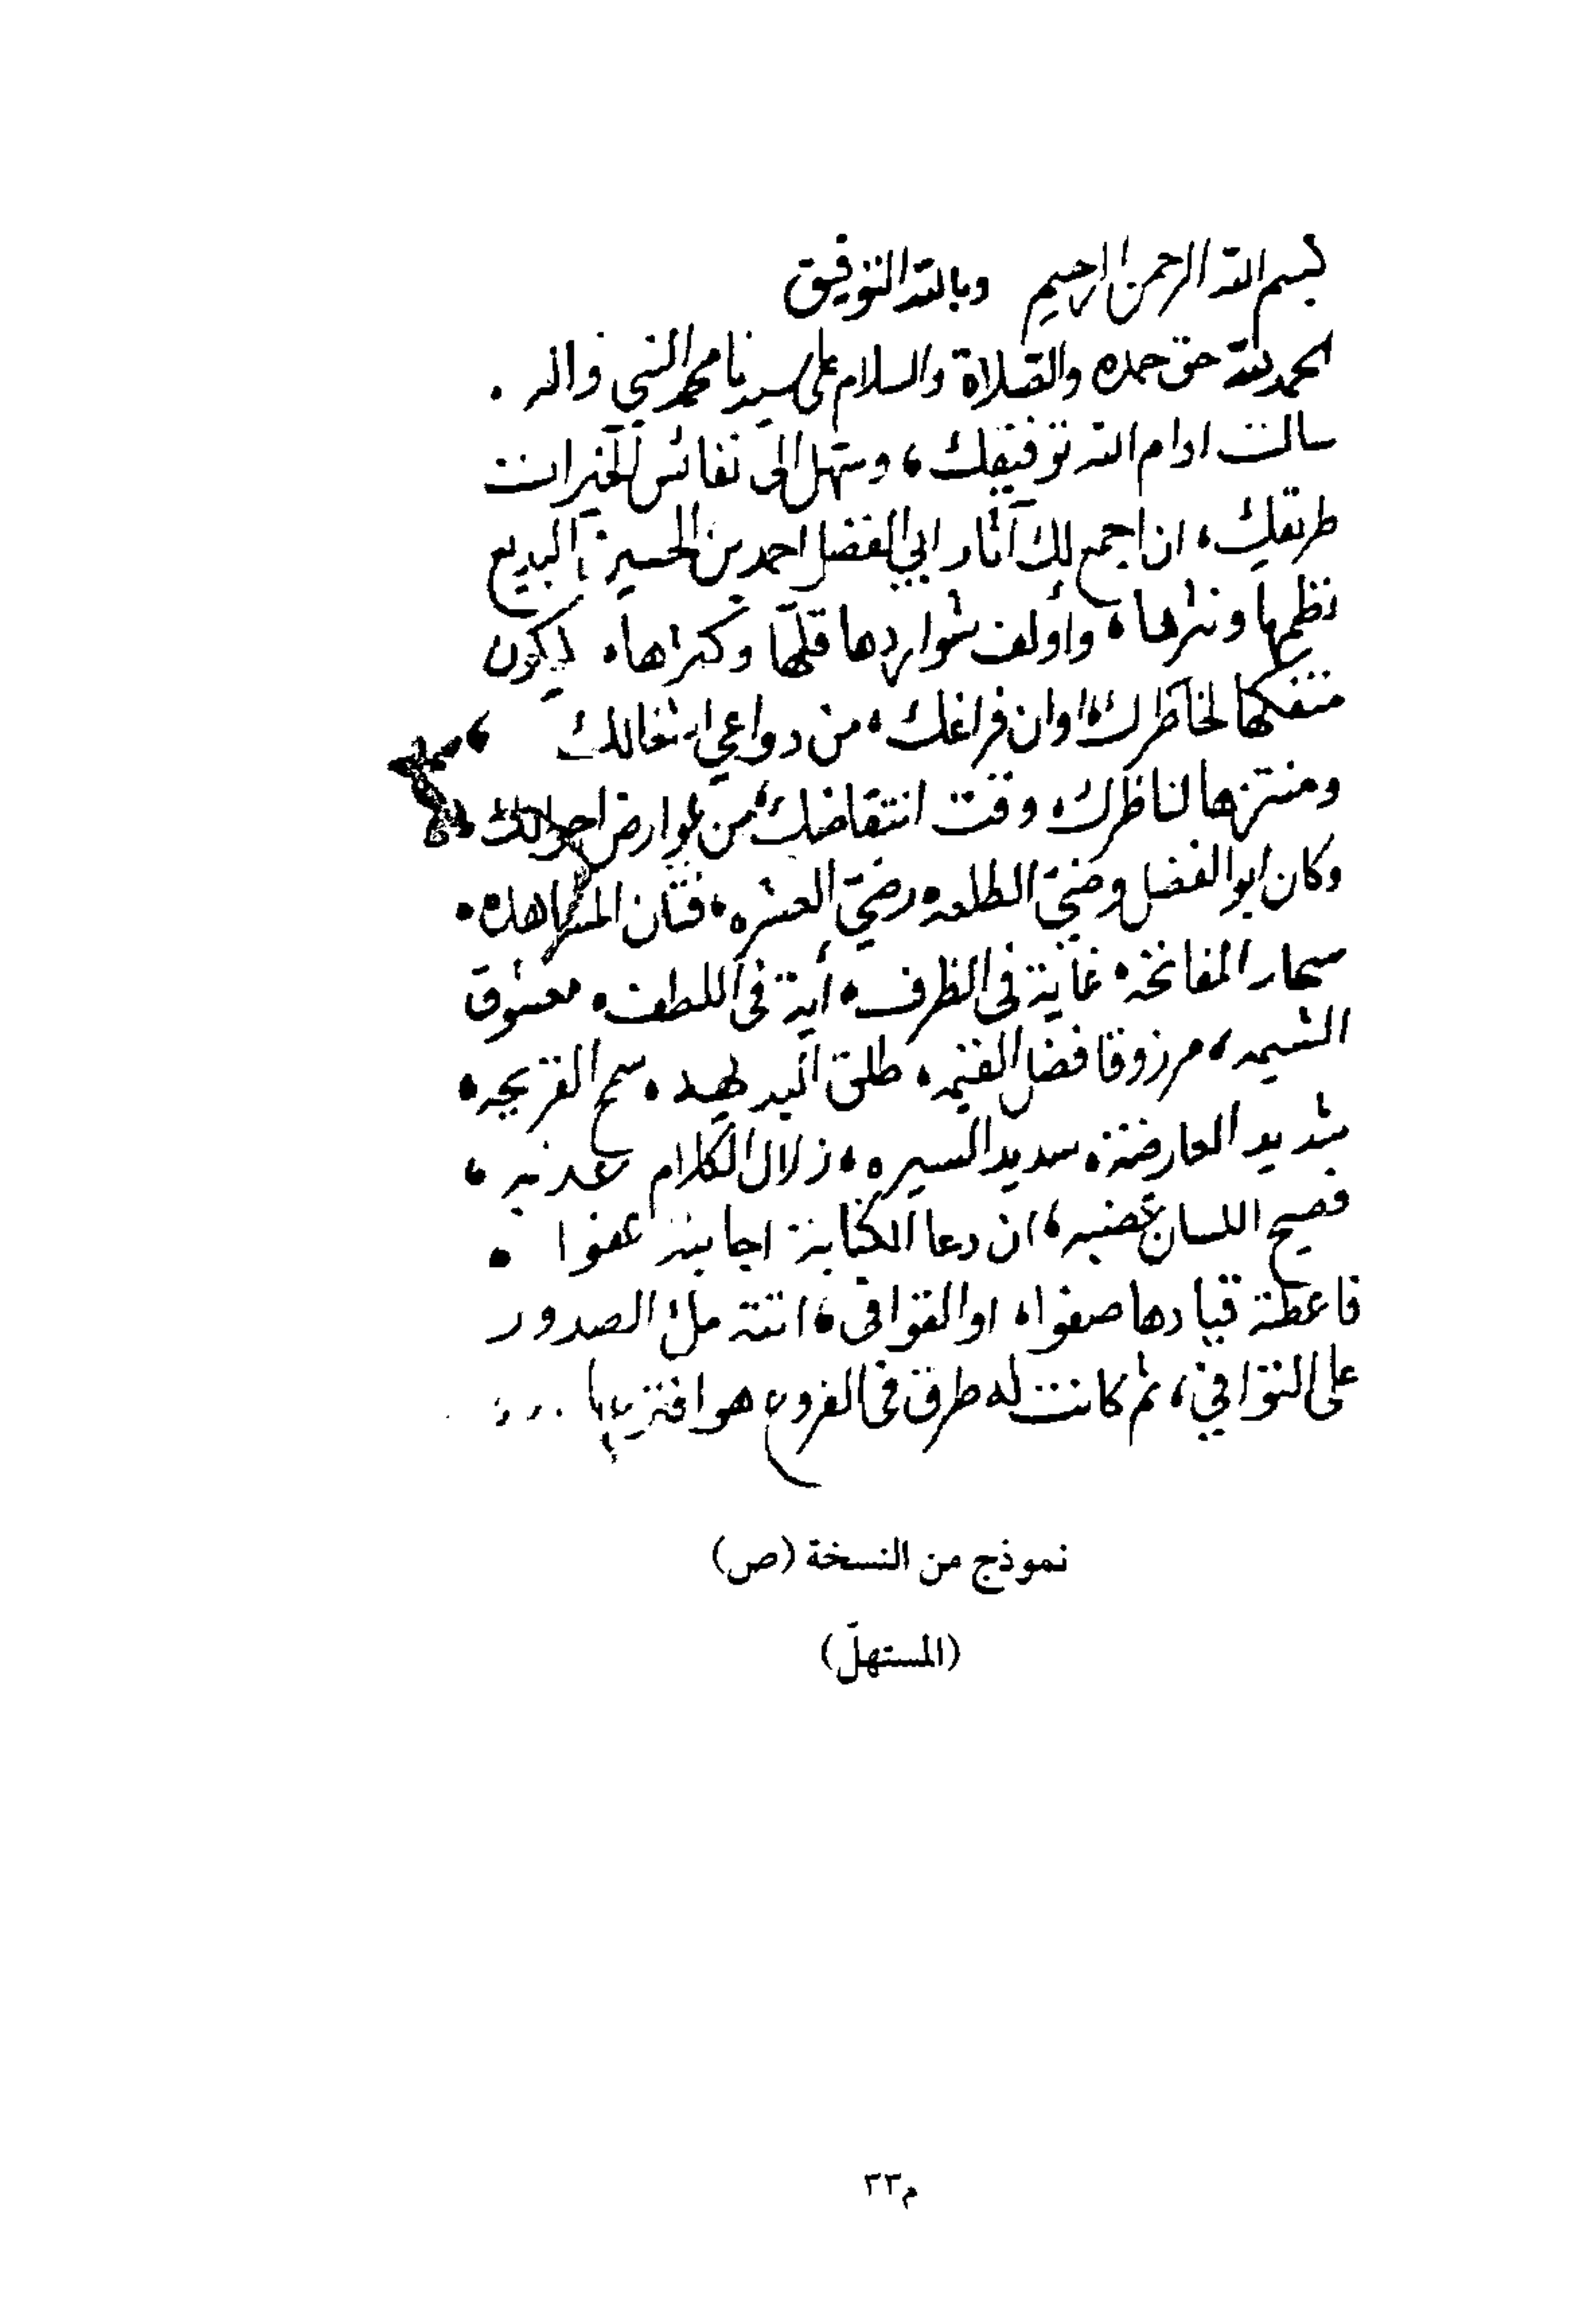 بسم الله الرحمن الرحيم وبالله التوفيق
الحمد لله حق حمده والصلاة والسلام على سيدنا محمد النبي واله .
سالت ادام الله توفيقك ، وسهل الى نفائس الخيرات
طريقك ، ان اجمع لك آثار ابي الفضل احمد بن الحسين البديع
نظمها ونثرها ، وأولف شواردها قلها وكثرها ، ليكون
متفكها لخاطرك ، اوان فراغك ، من دواعي اشغالك ،
ومنتزها لناظرك ، وقت انتقاضك ، من عوارض احوالك ،
وكان ابو الفضل وضيّ الطلعه ، رضيّ العشره ، فتان المشاهده ،
سحار المفاتحه ، غاية فى الظرف ، أية فى اللطف ، معشوق
الشيمه ، مرزوقا فضل القيمه ، طلق البديهه ، سمح القريحه ،
شديد العارضة ، سديد السيره ، زلال الكلام عذبه ،
فصيح اللسان عضبه ، ان دعا الكتابة اجابته عفوا .
فاعطته قيادها صفوا ، او القوافى ، اتته ملء الصدور
على التوافي ، ثم كانت له طرق فى الفروع هو افترعها
نموذج من النسخة (ص)
(المستهلّ)
م٣٣